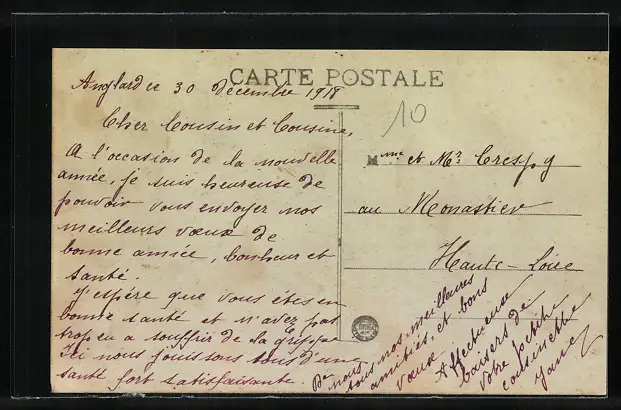 CARTE POSTALE
10
Anglard ce 30 décembre 1918
Cher Cousin et Cousine,
A l'occasion de la nouvelle
année, je suis heureuse de
pouvoir vous envoyer nos
meilleurs vœux de
bonne année, bonheur et
santé.
J'espère que vous êtes en
bonne santé et n'avez pas
trop eu a souffrir de la grippe
Ici nous jouissons tous d'une
santé fort satisfaisante.
De nous nos meilleures
tous amitiés, et bons
vœux
Affectueuse
baisers de
votre petite
cousinette
Jane
Mme et Mr Crespy
au Monastier
Haute-Loire